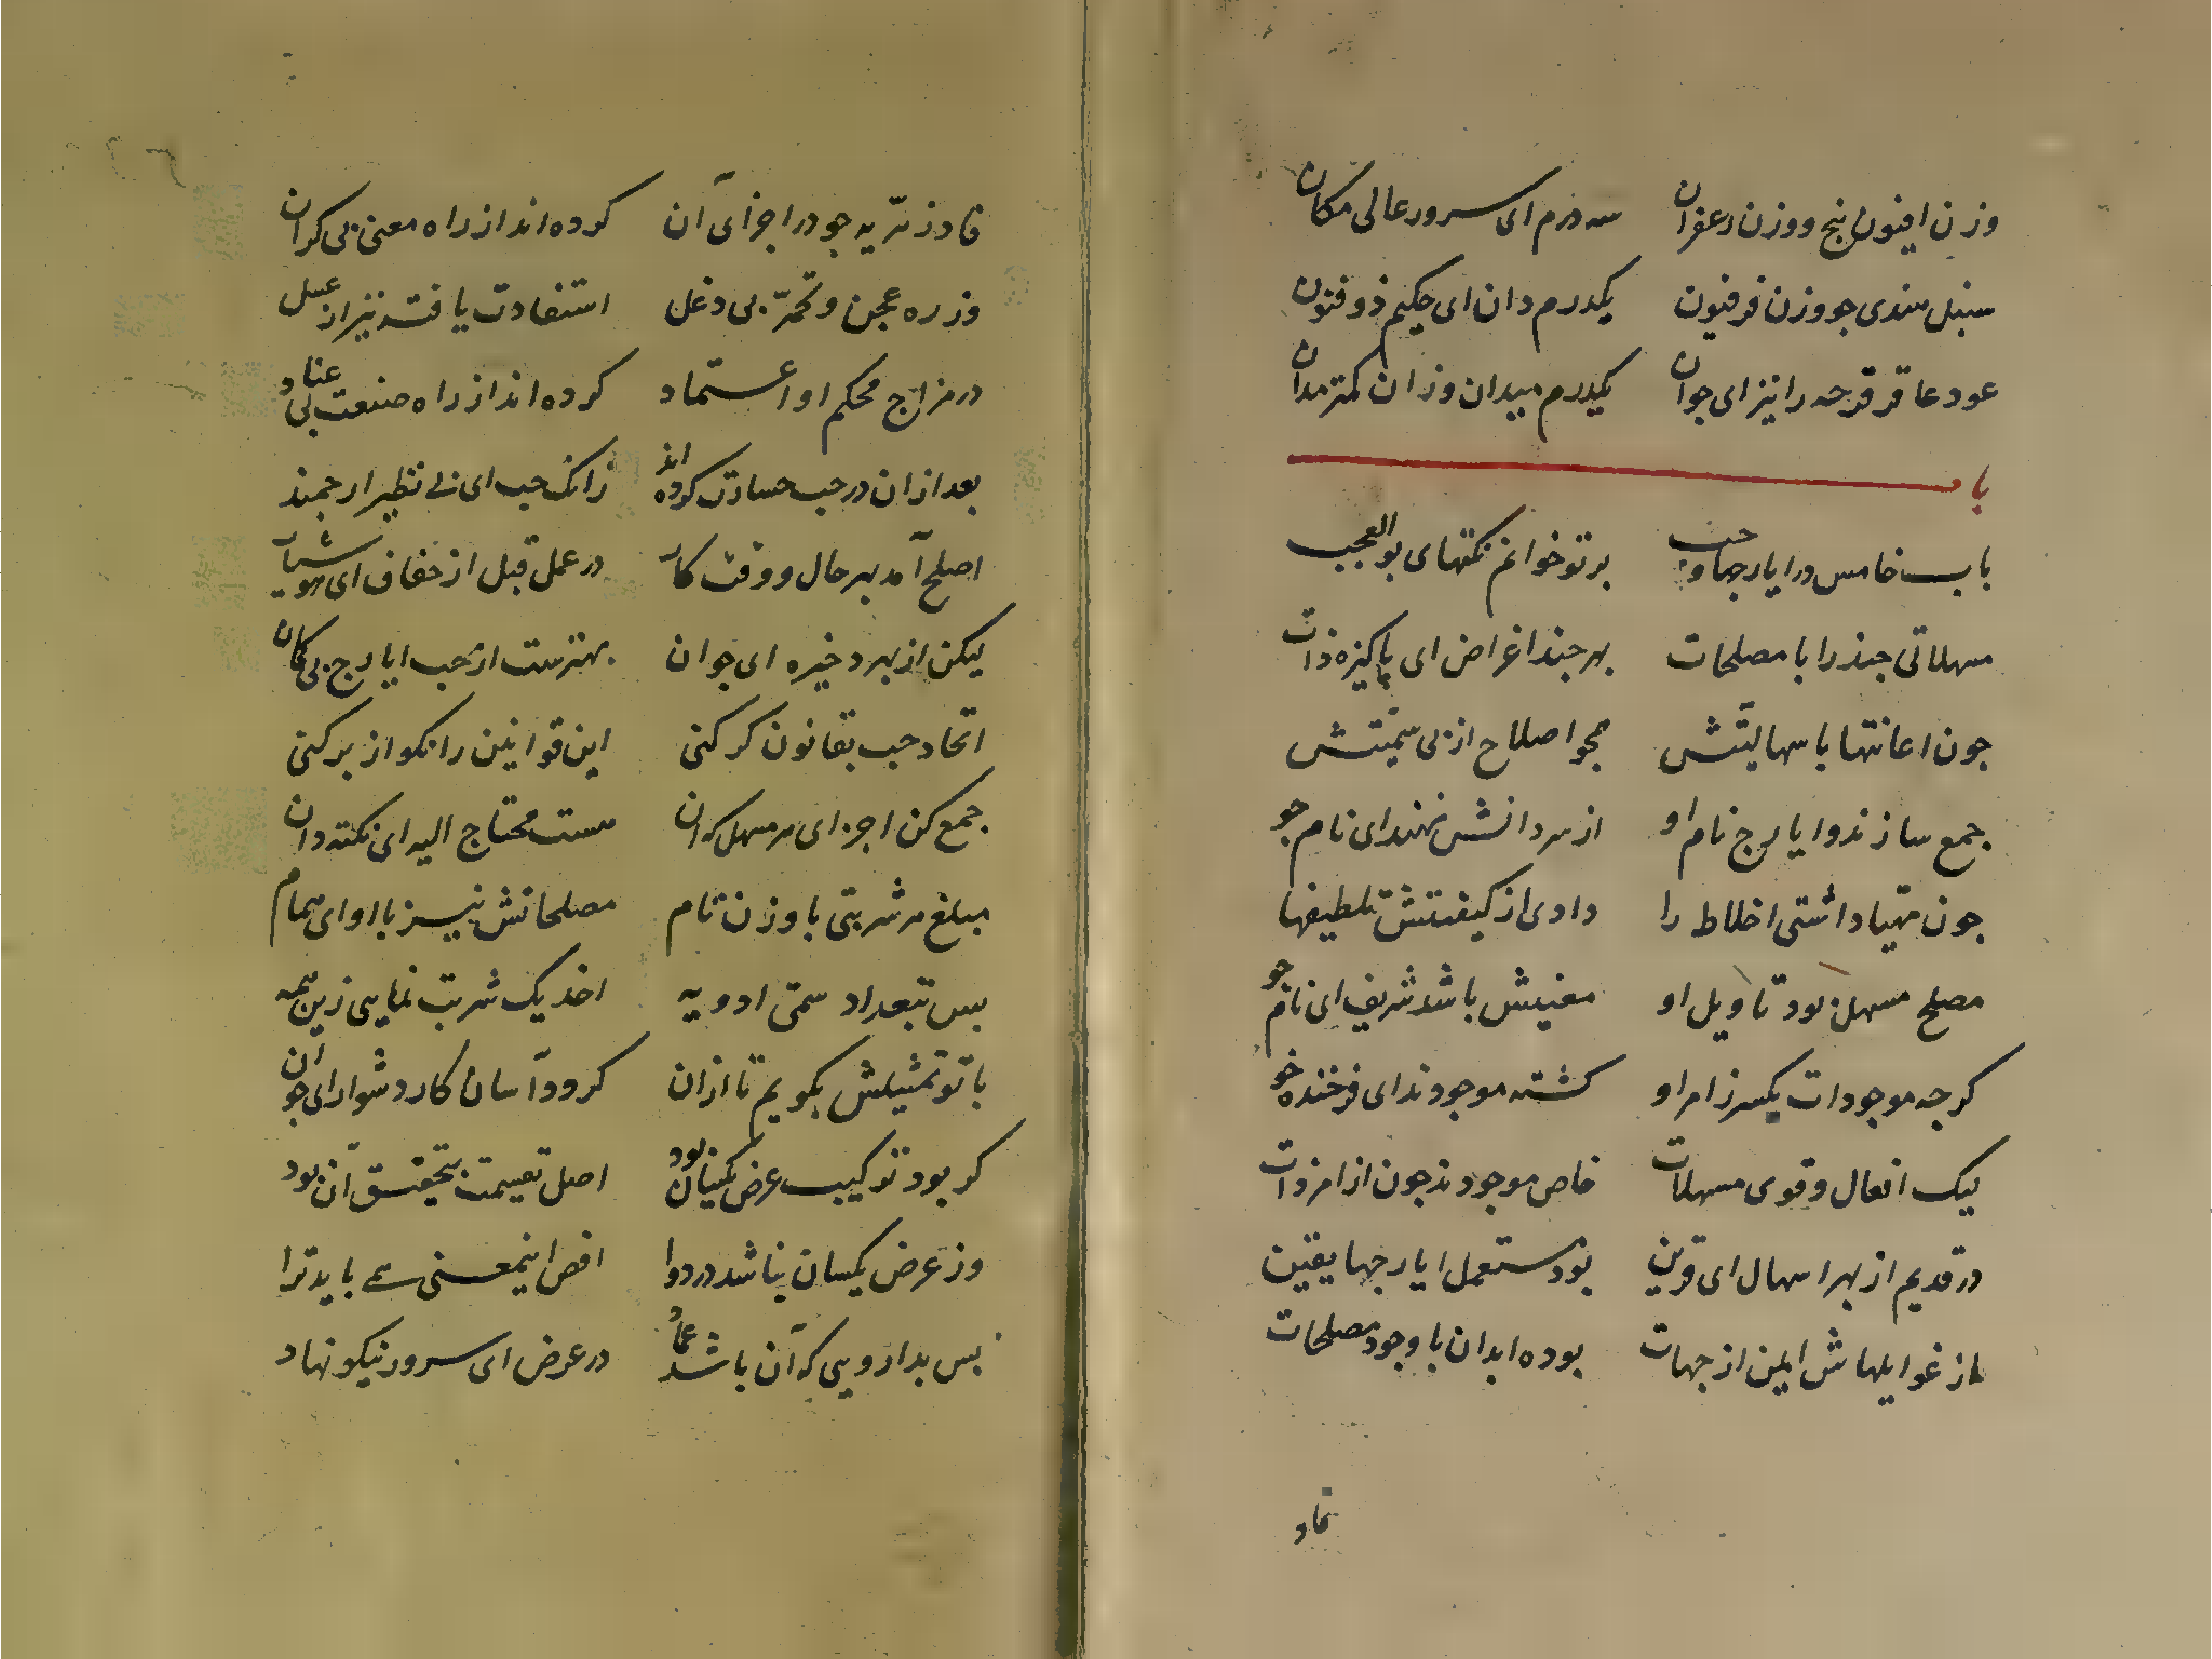 وزن افیون بنج و وزن زعفران سه درم ای سرور عالی مکان
سنبل هندی جو وزن فرفیون یکدرم دان ای حکیم ذوفنون
عود عاقرقرحه را نیز ای جوان یکدرم میدان وزان کمتر مدان
باب
باب خامس در ایارجها و حب بر تو خوانم نکتهای بوالعجب
مسهلاتی جند را با مصلحات بهر جند اغراض ای پاکیزه ذات
جون اعانتها باسهالیتش محو اصلاح از بی سمیتش
جمع سازند و ایارج نام او از سر دانش نهند ای نام جو
جون مهیا داشتی اخلاط را دادی از کیفیتش تلطیفها
مصلح مسهل بود تاویل او معنیش باشد شریف ای نام جو
کرجه موجودات یکسر ز امر او کشته موجودند ای فرخنده خو
لیک افعال و قوی مسهلات خاص موجودند جون از امر ذات
در قدیم از بهر اسهال ای قرین بود مستعمل ایارجها یقین
از غوایلهاش ایمن از جهات بوده ابدان با وجود مصلحات
فاد زهریه جو در اجزای آن کرده اند از راه معنی بی کران
وز ره عجن و تخمر بی دغل استفادت یافته نیز از عسل
در مزاج محکم او اعتماد کرده اند از راه صنعت بی عناد
بعد ازان در حب حسادت کرده اند زانک حب ای بی نظیر ارجمند
اصلح آمد بهر حال و وقت کار در عمل قبل از خفاف ای هوشیار
لیکن از بهر ذخیره ای جوان بهترست از حب ایارج بی کمان
اتحاد حب بقانون کر کنی این قوانین را نکو از بر کنی
جمع کن اجزای هر مسهل که آن هست محتاج الیه ای نکته دان
مبلغ هر شربتی با وزن تام مصلحاتش نیز با او ای همام
بس بتعداد سمی ادویه اخذ یک شربت نمایی زین همه
با تو تمثیلش بکویم تا ازان کردد آسان کار دشوار ای جوان
کر بود ترکیب عرض یکسان بود اصل تقسیمت بتحقیق آن بود
وز عرض یکسان نباشد در دوا افص اینمعنی سے باید ترا
بس بدارویی که آن باشد عماد در عرض ای سرور نیکو نهاد